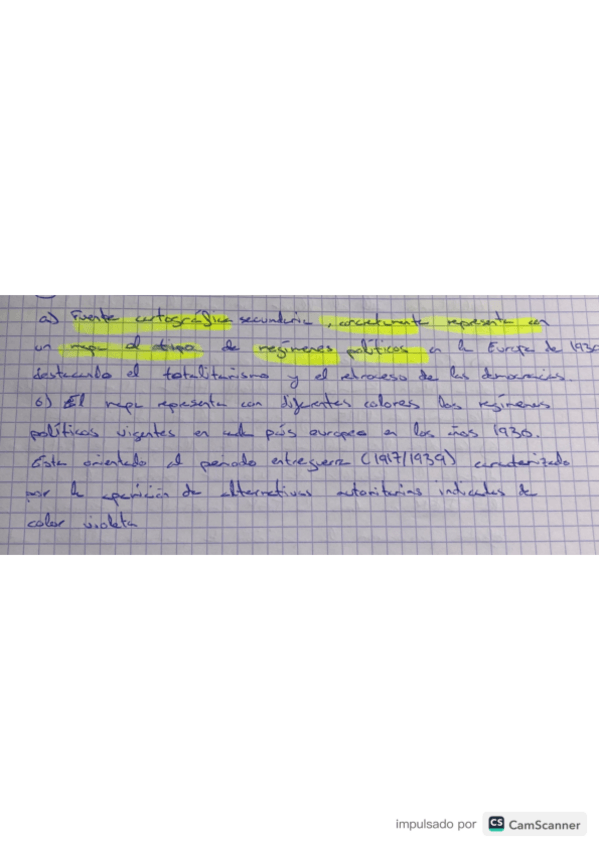 a) Fuente cartográfica secundaria, concretamente representa en
un mapa el tipo de regímenes políticos en la Europa de 1930
destacando el totalitarismo y el retroceso de las democracias.
b) El mapa representa con diferentes colores los regímenes
políticos vigentes en cada país europeo en los años 1930.
Esta orientado al periodo entreguerra (1917/1939) caracterizado
por la aparición de alternativas autoritarias indicadas de
color violeta
impulsado por CS CamScanner